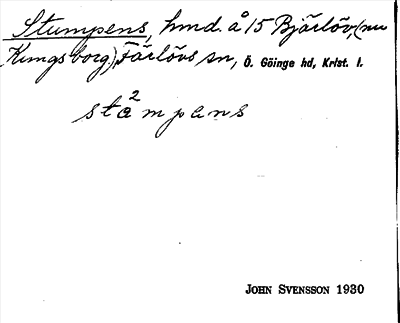 Stumpens, hmd. å 15 Bjärlöv, (nu
Kungsborg) Färlövs sn, Ö. Göinge hd, Krist. l.
sta²mpens
JOHN SVENSSON 1930